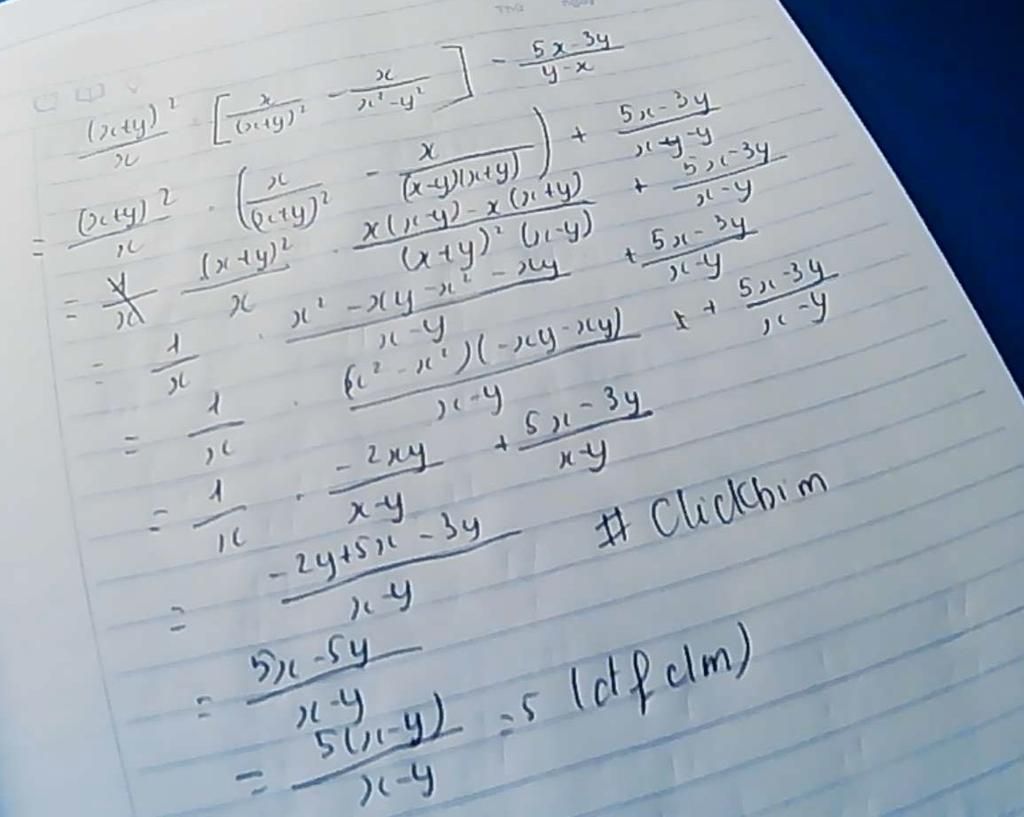 (x+y)²/x · [x/(x+y)² - x/(x²-y²)] - (5x-3y)/(y-x)
= (x+y)²/x · (x/(x+y)² - x/((x-y)(x+y))) + (5x-3y)/(x-y)
= (x+y)²/x · (x(x-y)-x(x+y))/((x+y)²(x-y)) + (5x-3y)/(x-y)
= 1/x · (x²-xy-x²-xy)/(x-y) + (5x-3y)/(x-y)
= 1/x · ((x²-x²)(-xy-xy))/(x-y) + (5x-3y)/(x-y)
= 1/x · (-2xy)/(x-y) + (5x-3y)/(x-y)
= (-2y+5x-3y)/(x-y) # Clickbim
= (5x-5y)/(x-y)
= 5(x-y)/(x-y) = 5 (đfclm)